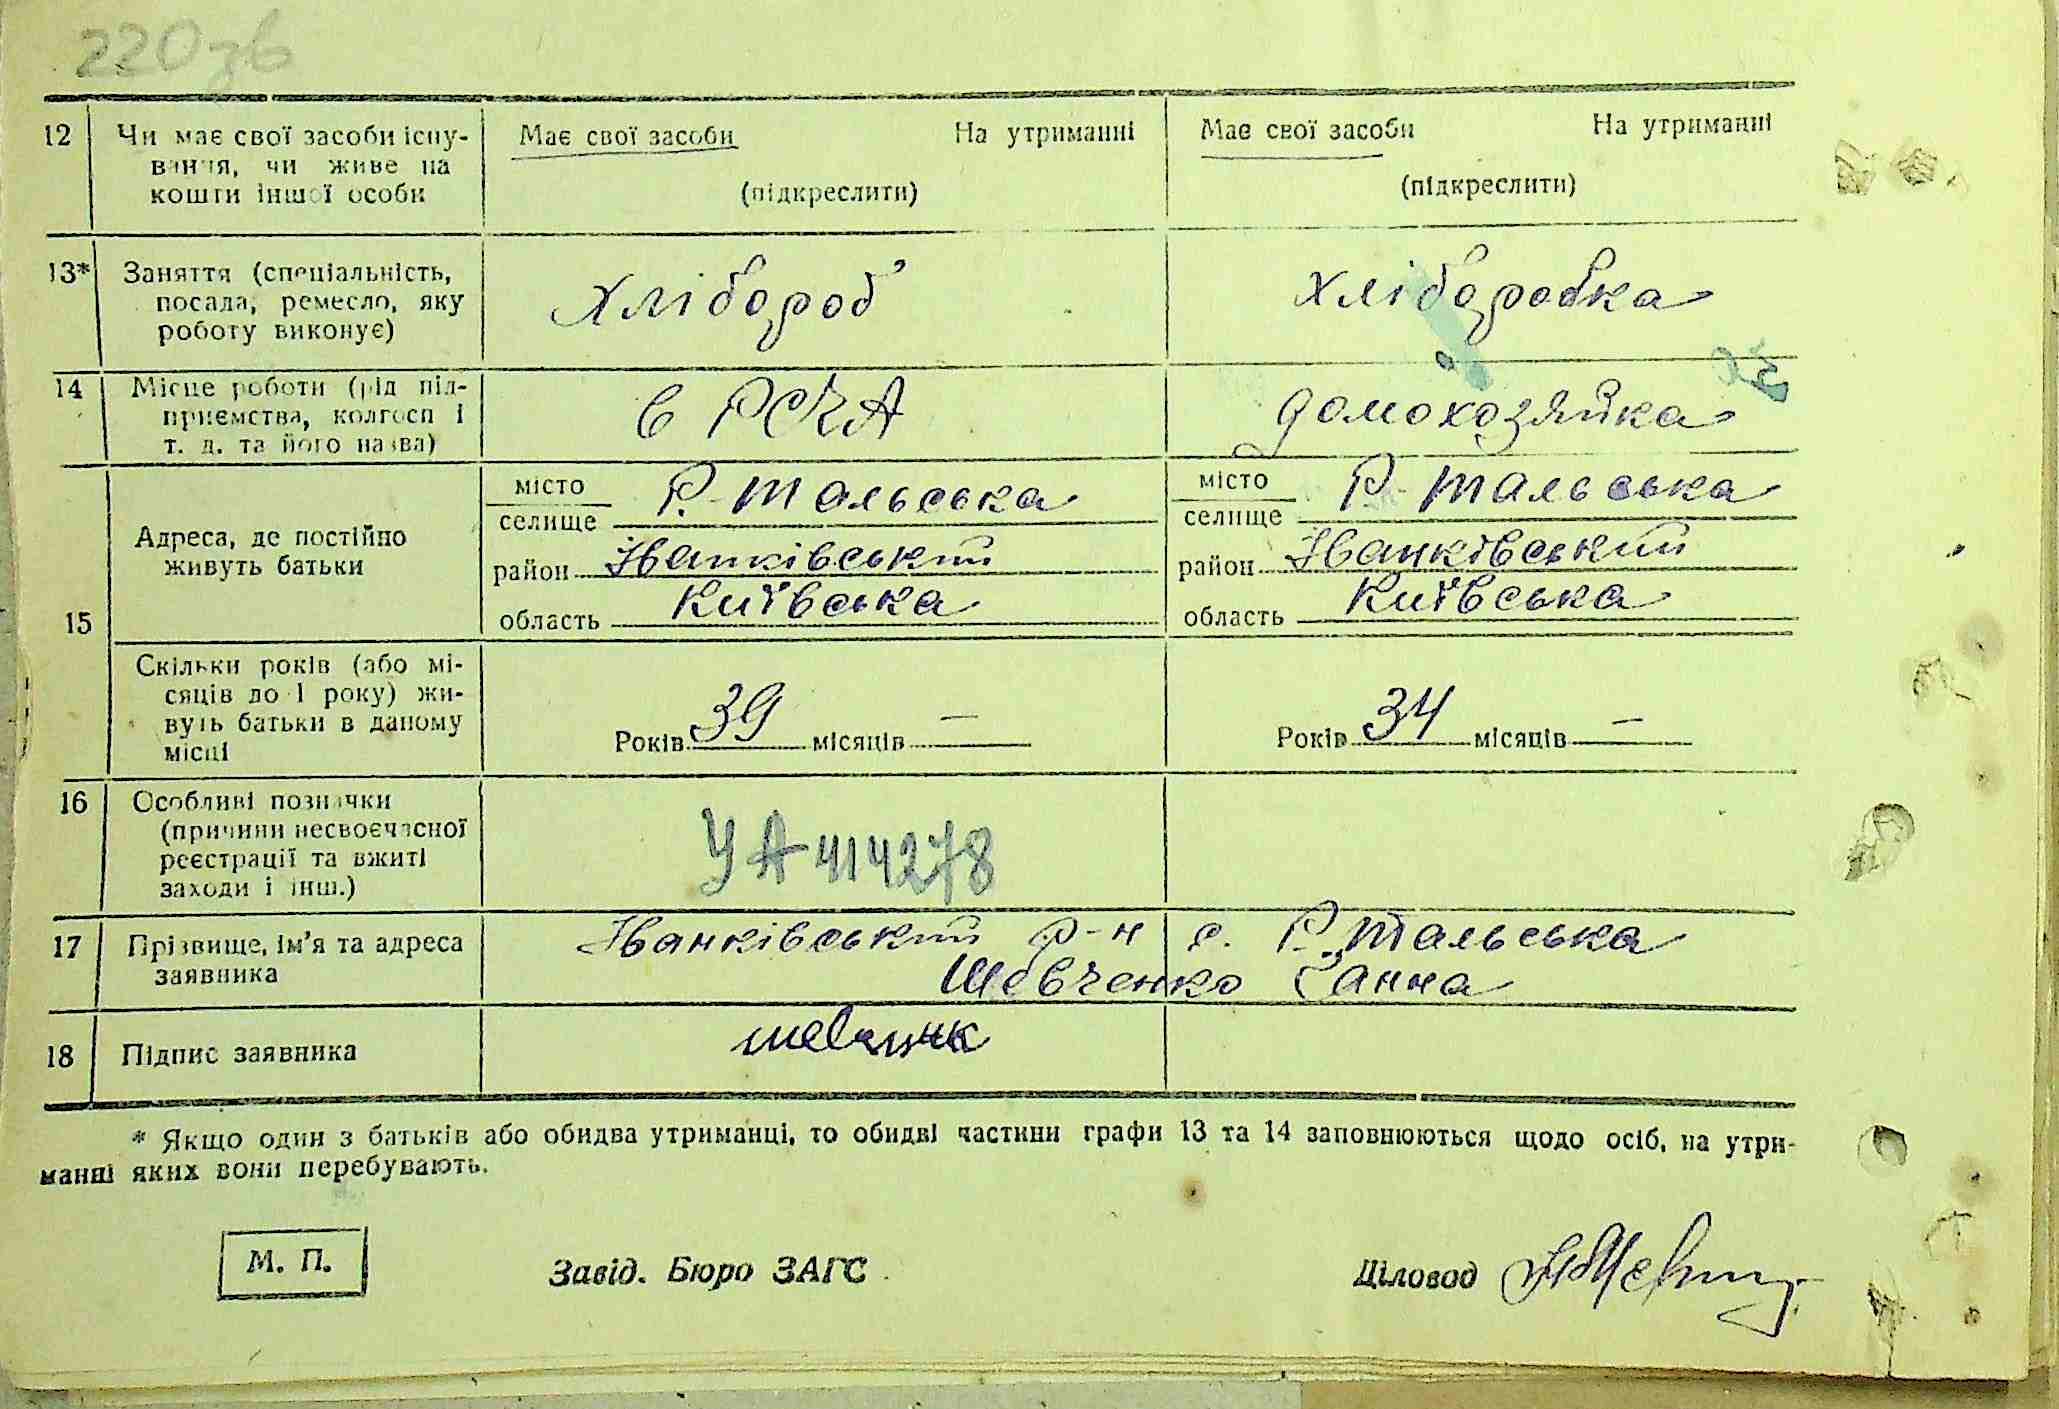 220 зв
12 Чи має свої засоби існу-
вання, чи живе на
кошти іншої особи
Має свої засоби На утриманні
(підкреслити)
Має свої засоби На утриманні
(підкреслити)
13* Заняття (спеціальність,
посада, ремесло, яку
роботу виконує)
Хлібороб
Хліборобка
14 Місце роботи (рід під-
приємства, колгосп і
т. д. та його назва)
в РСЧА
домохозяйка
15
Адреса, де постійно
живуть батьки
місто
селище Р. Тальська
район Іванківський
область Київська
місто
селище Р. Тальська
район Іванківський
область Київська
Скільки років (або мі-
сяців до 1 року) жи-
вуть батьки в даному
місці
Років 39 місяців —
Років 34 місяців —
16 Особливі позначки
(причини несвоєчасної
реєстрації та вжиті
заходи і інш.)
УА 414278
17 Прізвище, ім'я та адреса
заявника
Іванківський р-н с. Р. Тальська
Шевченко Ганна
18 Підпис заявника
* Якщо один з батьків або обидва утриманці, то обидві частини графи 13 та 14 заповнюються щодо осіб, на утри-
манні яких вони перебувають.
М. П.
Завід. Бюро ЗАГС
Діловод